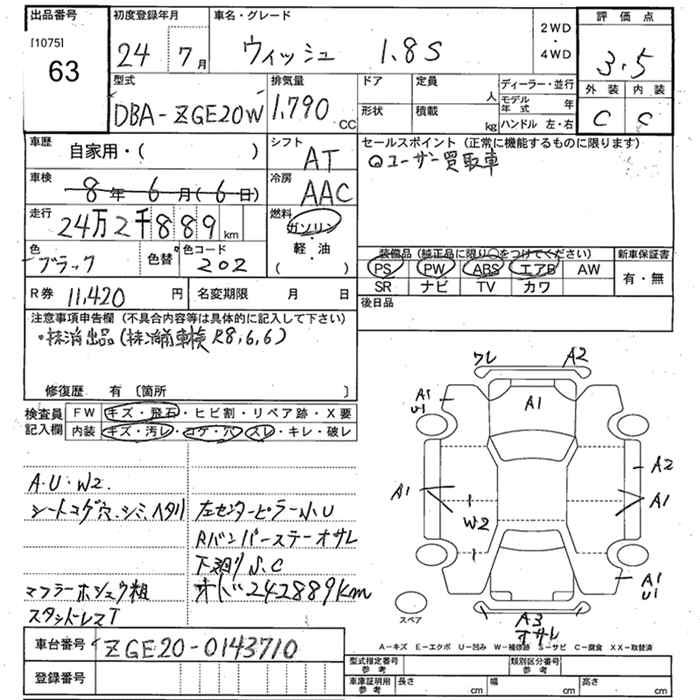 出品番号 初度登録年月 車名・グレード 2WD・4WD 評価点
[1075] 63
24 7月 ウィッシュ 1.8S 3.5
外装 内装
C C
型式 排気量 ドア 定員 人 ディーラー・並行
DBA-ZGE20W 1,790 CC
形状 積載 kg モデル年式 年
ハンドル 左・右
車歴 自家用・( )
シフト AT
セールスポイント (正常に機能するものに限ります)
◎ユーザー買取車
車検 8年 6月 (6日)
冷房 AAC
走行 24万2千889km
燃料 ガソリン・軽・油 ( )
色 ブラック 色替 色コード 202
装備品 (純正品に限り○をつけてください) 新車保証書
PS PW ABS エアB AW 有・無
SR ナビ TV カワ
R券 11,420円 名変期限 月 日
後日品
注意事項申告欄 (不具合内容等は具体的に記入して下さい)
・抹消出品(抹消前車検 R8,6,6)
修復歴 有 〔箇所 〕
検査員記入欄 FW キズ・飛石・ヒビ割・リペア跡・X要
内装 キズ・汚レ・コゲ・穴・スレ・キレ・破レ
A.U.W2.
シートコゲ穴.シミ.ヘタリ 左センターピラー小U
Rバンパーステーオサレ
下廻りS.C
マフラーホシュウ粗 オドメ242889km
スタットレスT
車台番号 ZGE20-0143710
登録番号
ワレ A2
A1 U1
A1
A2
A1
A1
W2
A1 U1
スペア
A3 オサレ
A-キズ E-エクボ U-凹み W-補修跡 S-サビ C-腐食 XX-取替済
型式指定番号 参考 類別区分番号 参考
車庫証明用 参考 長さ cm 幅 cm 高さ cm